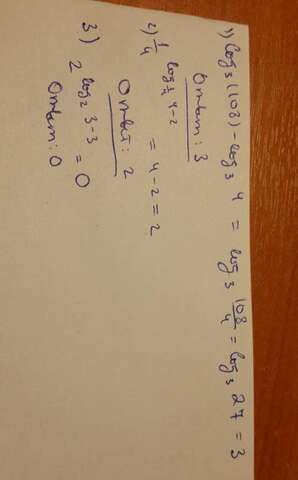 1) log₃(108) - log₃ 4 = log₃ 108/4 = log₃ 27 = 3
Ответ: 3
2) 1/4 ^ log_{1/4} 4-2 = 4-2 = 2
Ответ: 2
3) 2^{log₂ 3-3} = 0
Ответ: 0